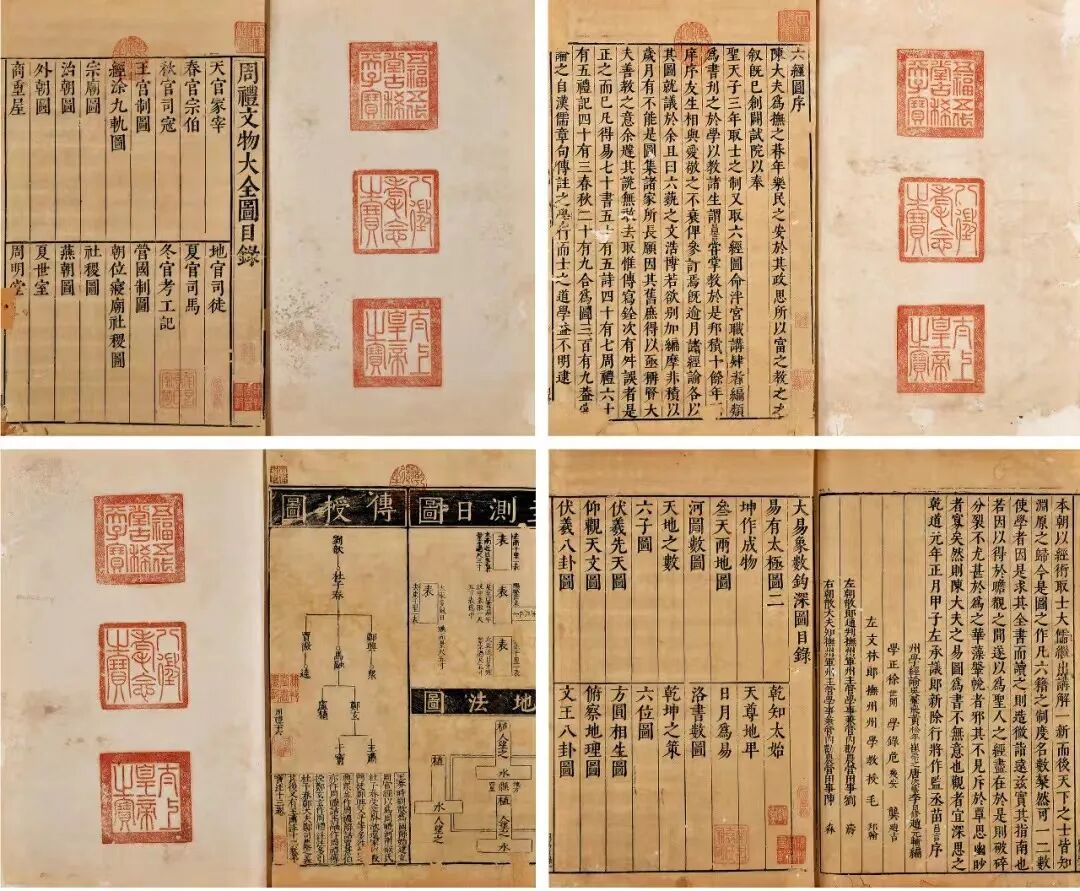 周禮文物大全圖目錄
天官冢宰 地官司徒
春官宗伯 夏官司馬
秋官司寇 冬官考工記
王官制圖 營國制圖
經涂九軌圖 朝位寢廟社稷圖
宗廟圖 社稷圖
治朝圖 燕朝圖
外朝圖 夏世室
商重屋 周明堂
五福五代堂古稀天子寶
八徵耄念之寶
太上皇帝之寶
六經圖序
陳大夫爲撫之朞年樂民之安於其政思所以富之教之之
敘既已創闢試院以奉
聖天子三年取士之制又取六經圖命泮宮職講肄者編類
爲書刊之於學以教諸生謂昌言嘗掌教於是邦積十餘年
庠序友生相與愛敬之不衰俾參訂焉既逾月諸經論各以
其圖就議於余且曰六藝之文浩博若欲別加編摩非積以
歲月有不能是圖集諸家所長願因其舊庶得以亟辨賢大
夫善教之意余韙其說無敢去取惟傳寫銓次有舛誤者是
正之而已凡得易七十書五十有五詩四十有七周禮六十
有五禮記四十有三春秋二十有九合爲圖三百有九蓋嘗
論之自漢儒章句傳註之學行而士之道學益不明逮
五福五代堂古稀天子寶
八徵耄念之寶
太上皇帝之寶
五福五代堂古稀天子寶
八徵耄念之寶
太上皇帝之寶
測日圖
表
表
表
表
地法圖
植
水
植
人望之
水
植
水
人望之
傳授圖
劉歆
杜子春
鄭興 眾
賈徽 逵
馬融
鄭玄
盧植
王肅
干寶
本朝以經術取士大儒繼出講解一新而後天下之士皆知
淵原之歸今是圖之作凡六籍之制度名數粲然可一二數
使學者因是求其全書而讀之則造微詣遠茲實其指南也
若因以得於瞻觀之閒遂以爲聖人之經盡在於是則破碎
分裂不尤甚於爲之華藻鞶帨者邪其不見斥於覃思幽眇
者寡矣然則陳大夫之易圖爲書不無意也觀者宜深思之
乾道元年正月甲子左承議郎新除行將作監丞苗昌言序
左文林郎撫州州學教授毛邦翰
大易象數鉤深圖目錄
易有太極圖二 乾知太始
坤作成物 天尊地卑
參天兩地圖 日月爲易
河圖數圖 洛書數圖
天地之數 乾坤之策
六子圖 六位圖
伏羲先天圖 方圓相生圖
仰觀天文圖 俯察地理圖
伏羲八卦圖 文王八卦圖